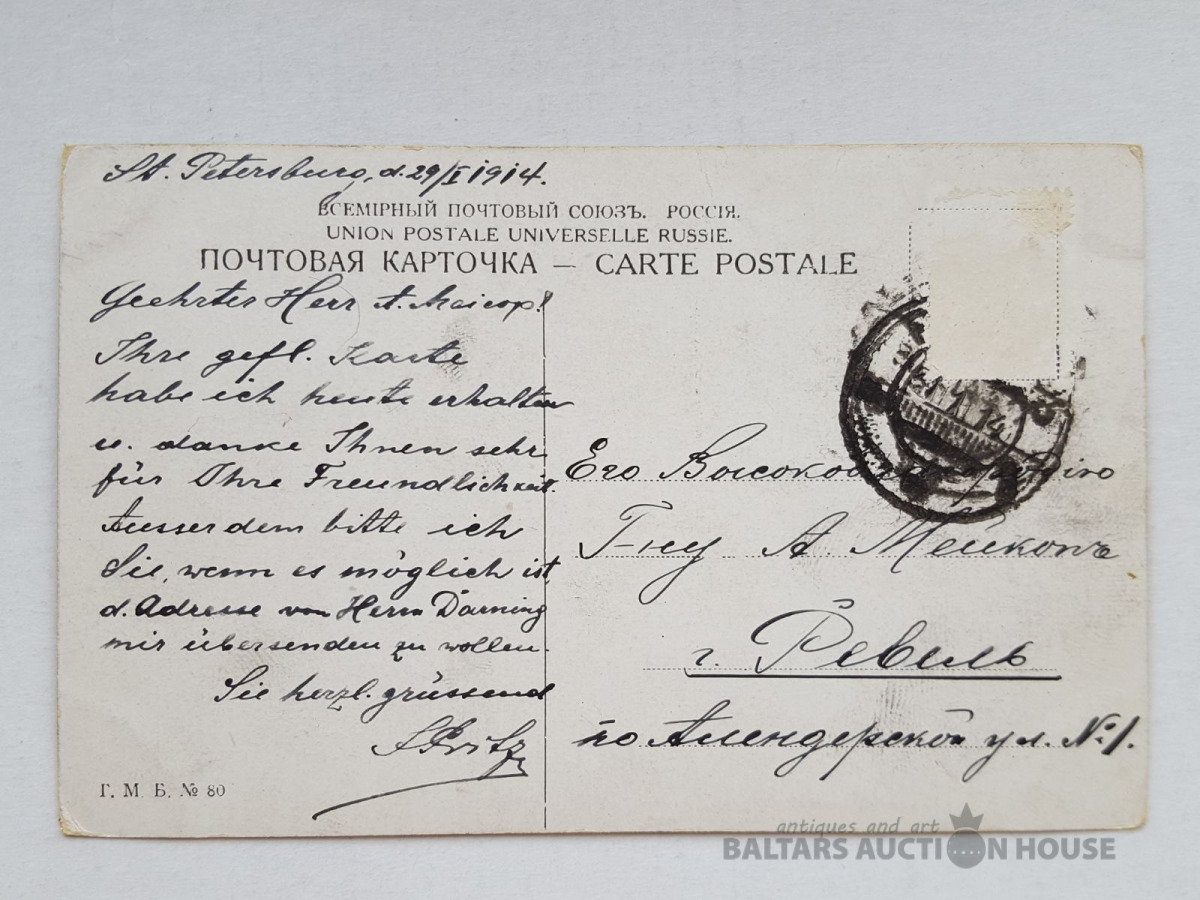 St. Petersburg, d. 29/I 1914.
ВСЕМІРНЫЙ ПОЧТОВЫЙ СОЮЗЪ. РОССІЯ.
UNION POSTALE UNIVERSELLE RUSSIE.
ПОЧТОВАЯ КАРТОЧКА — CARTE POSTALE
Geehrter Herr A.
Ihre gefl. Karte
habe ich heute erhalten
u. danke Ihnen sehr
für Ihre Freundlichkeit.
Ausserdem bitte ich
Sie, wenn es möglich ist,
d. Adresse von Herrn Därning
mir übersenden zu wollen.
Sie herzl. grüssend
Г. М. Б. № 80
31 1 14
Его
Гну А. Мейкопъ
г. Ревель
ул. № 1.
antiques and art
BALTARS AUCTION HOUSE